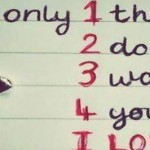 only 1 th
2 do
3 wa
4 you
I LO